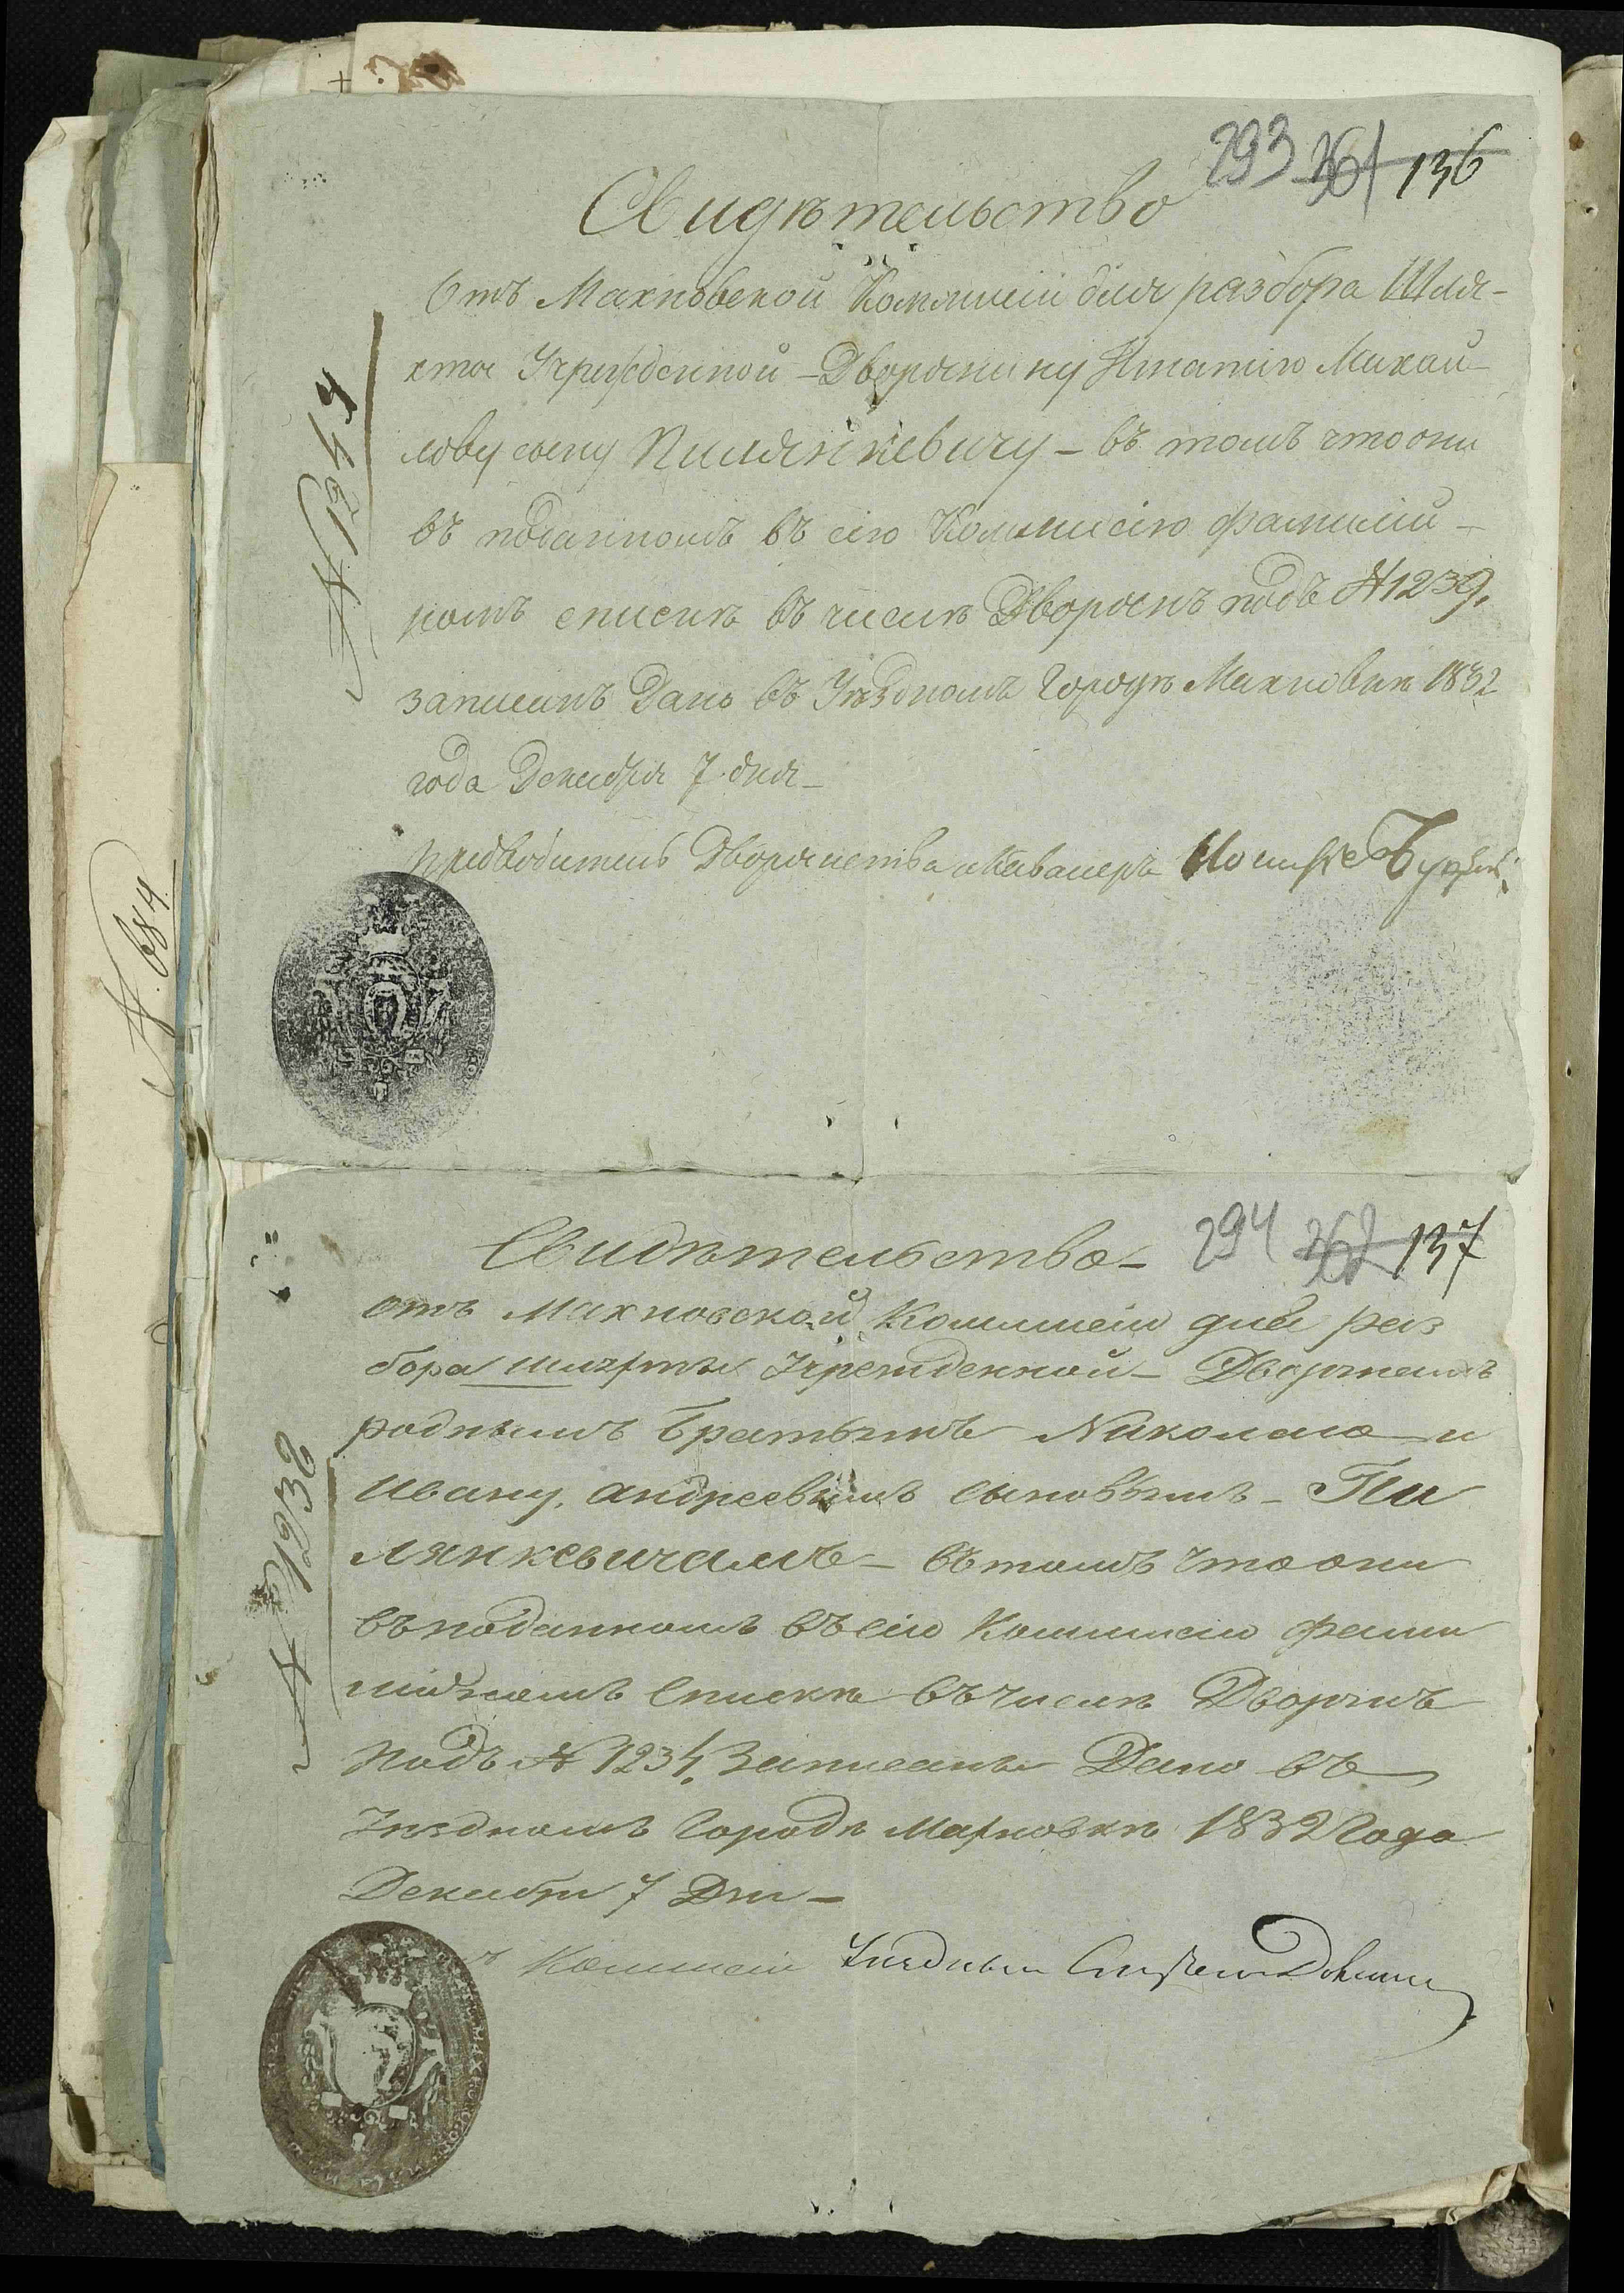 293 361 136
Свидѣтельство
Отъ Махновской Коммисіи для разбора Шля-
хты Учрежденной - Дворянину Игнатію Михай-
лову сыну Пилянкевичу - въ томъ что онъ
въ поданномъ въ сію Коммисію фамилій-
номъ списке въ числѣ Дворянъ подъ № 1239.
записанъ Дано въ Уѣздномъ Городѣ Махновкѣ 1832
года Декабря 7 дня -
Предводитель Дворянства и Кавалеръ
№ 1244
№ 684
294 362 137
Свидѣтельство -
отъ Махновской Коммисіи для раз
бора шляхты Учрежденной - Дворянамъ
роднымъ Братьямъ Николаю и
Ивану, андреевымъ сыновьямъ - Пи
лянкевичамъ - въ томъ что они
въ поданномъ въ сію Коммисію фами
лійномъ Спискѣ въ числѣ Дворянъ
подъ № 1234. Записаны Дано въ
Уѣздномъ Городѣ Махновкѣ 1832 Года
Декабря 7 Дня -
Коммисіи Уѣздный
№ 1236